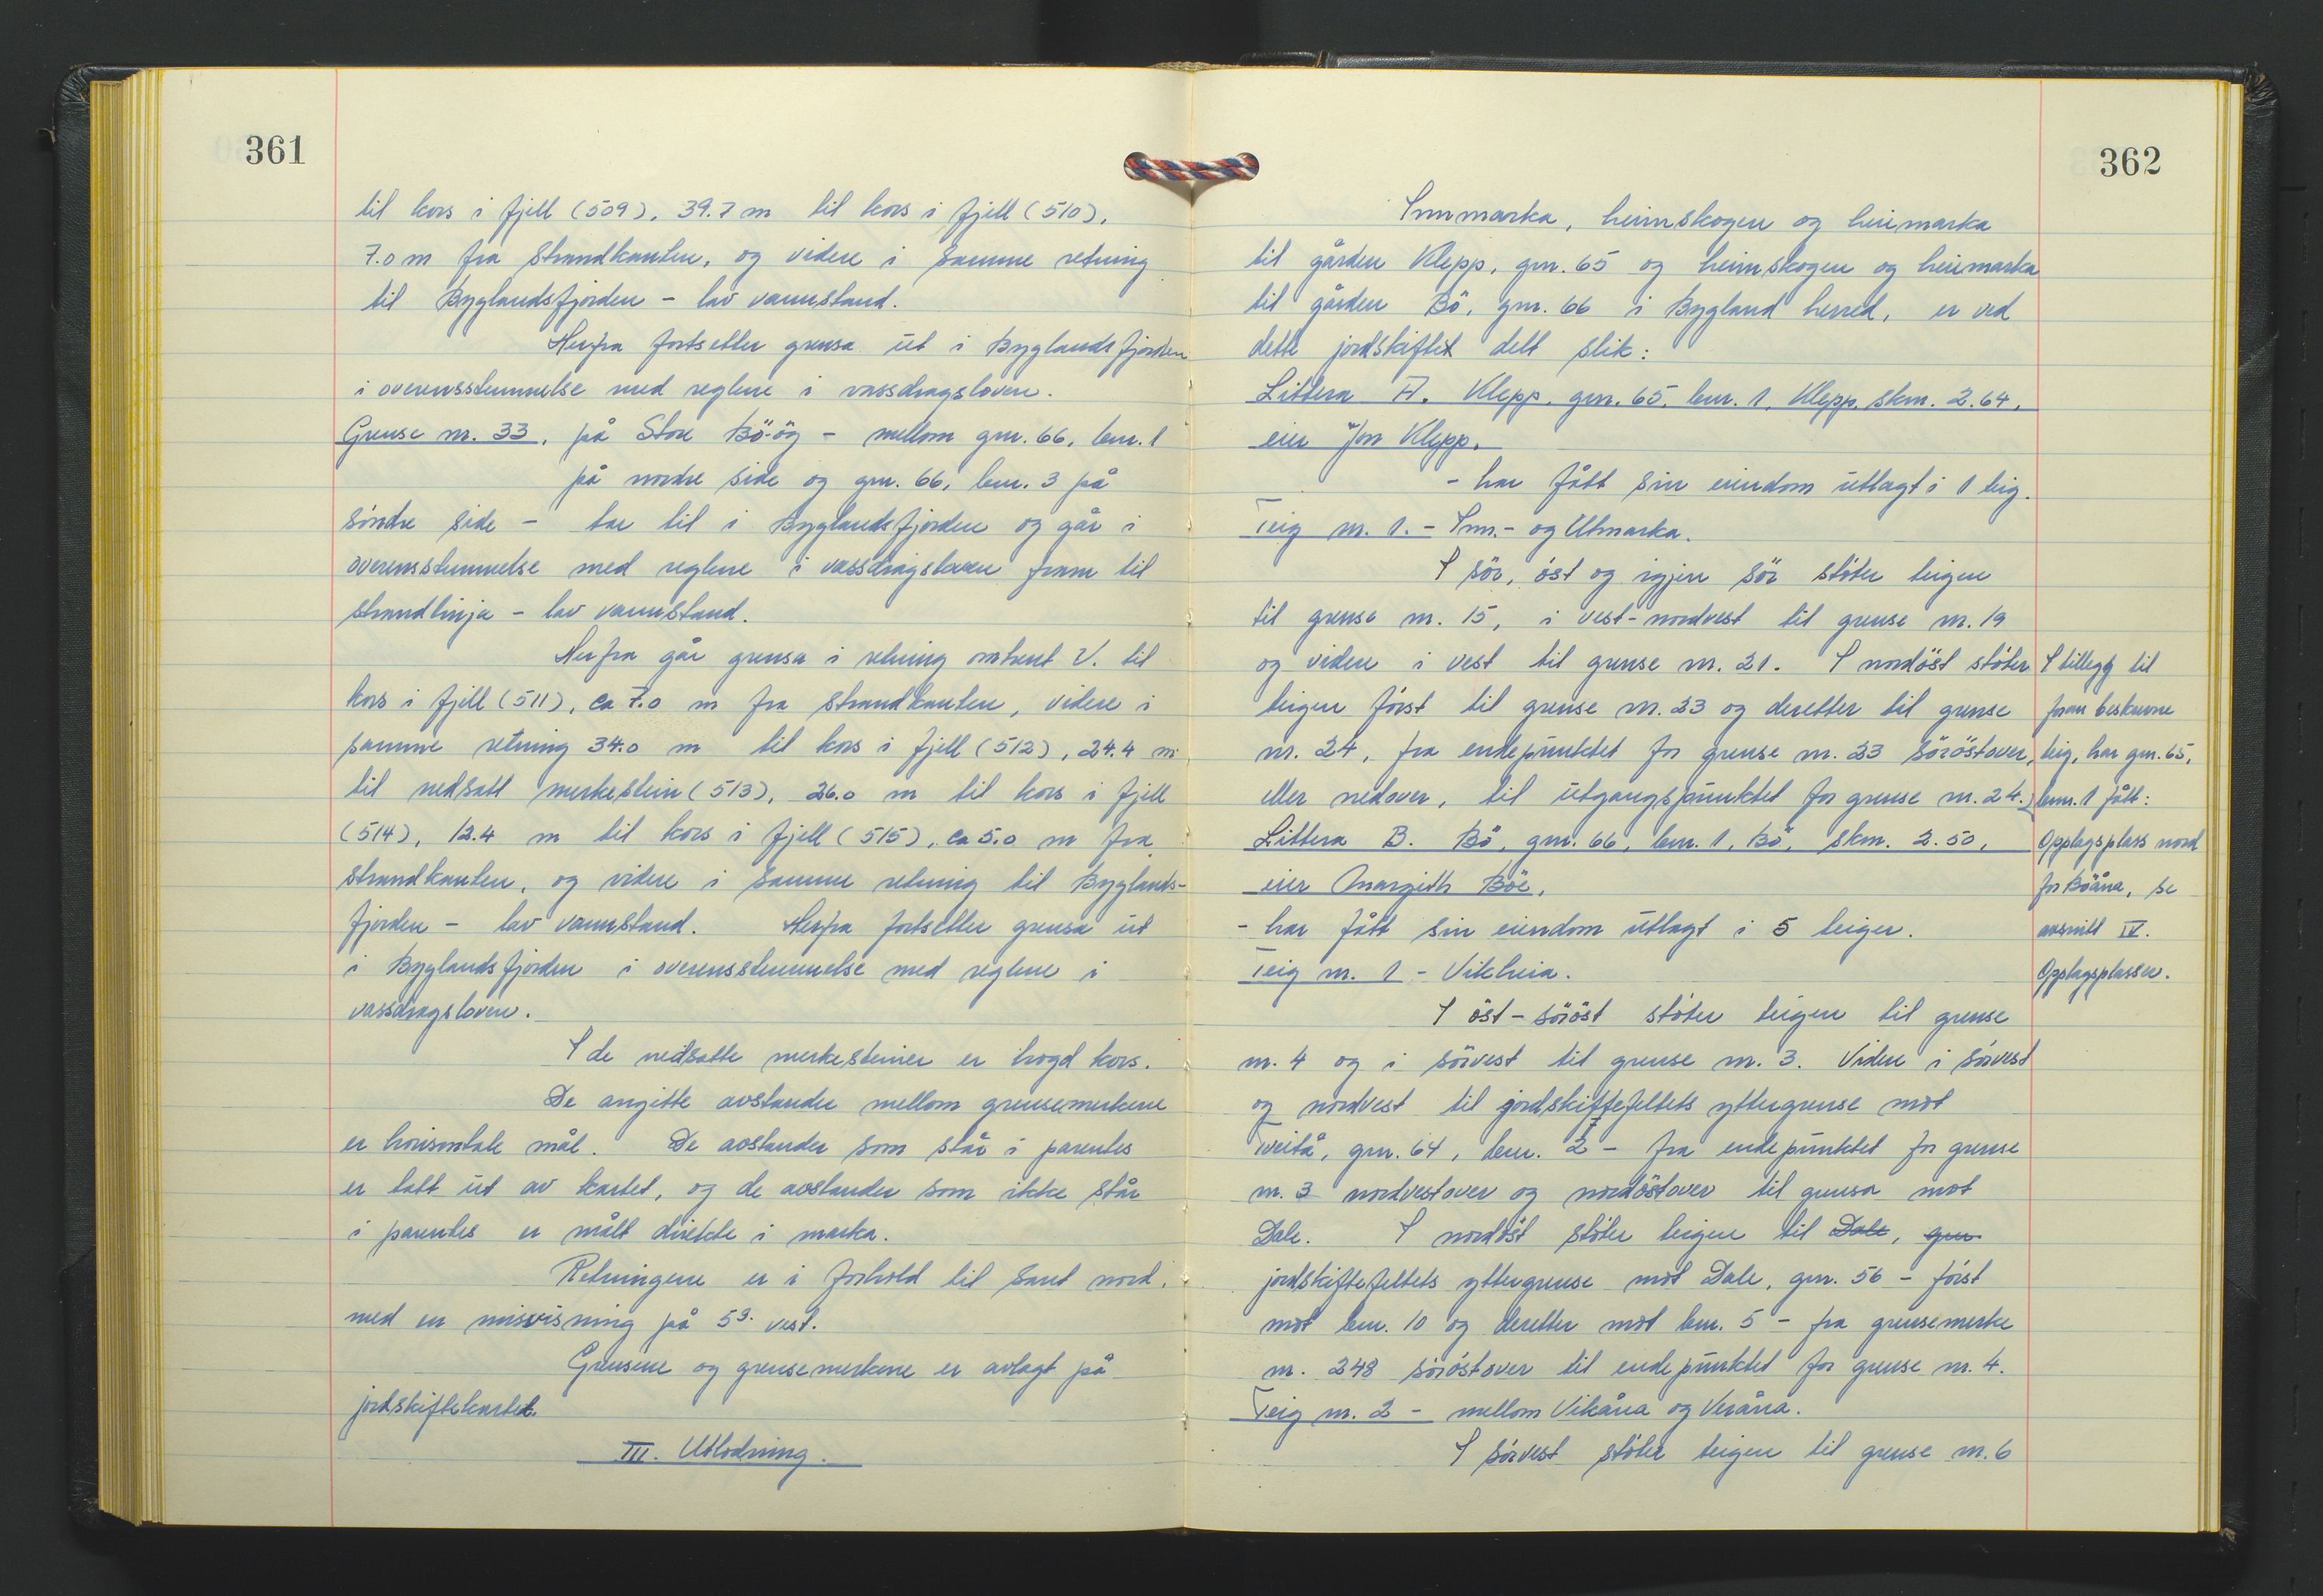 361
til kors i fjell (509), 39.7 m til kors i fjell (510),
7.0 m fra strandkanten, og videre i samme retning
til Byglandsfjorden - lav vannstand.
Herfra fortsetter grensa ut i Byglandsfjorden
i overensstemmelse med reglene i vassdragsloven.
Grense nr. 33, på Store Bö-öy - mellom gnr. 66, bnr. 1
på nordre side og gnr. 66, bnr. 3 på
söndre side - tar til i Byglandsfjorden og går i
overensstemmelse med reglene i vassdragsloven fram til
strandlinja - lav vannstand.
Herfra går grensa i retning omtrent V. til
kors i fjell (511), ca 7.0 m fra strandkanten, videre i
samme retning 34.0 m til kors i fjell (512), 24.4 m
til nedsatt merkestein (513), 26.0 m til kors i fjell
(514), 12.4 m til kors i fjell (515), ca 5.0 m fra
strandkanten, og videre i samme retning til Byglands-
fjorden - lav vannstand. Herfra fortsetter grensa ut
i Byglandsfjorden i overensstemmelse med reglene i
vassdragsloven.
I de nedsatte merkesteiner er hogd kors.
De angitte avstander mellom grensemerkene
er horisontale mål. De avstander som står i parentes
er tatt ut av kartet, og de avstander som ikke står
i parentes er målt direkte i marka.
Retningene er i forhold til sant nord,
med en misvisning på 5g. vest.
Grensene og grensemerkene er avlagt på
jordskiftekartet.
III. Utlodning.
362
Innmarka, heimskogen og heimarka
til gården Klepp, gnr. 65 og heimskogen og heimarka
til gården Bö, gnr. 66 i Bygland herred, er ved
dette jordskiftet delt slik:
Littera A. Klepp, gnr. 65, bnr. 1, Klepp, skm. 2.64,
eier Jon Klepp,
- har fått sin eiendom utlagt i 1 teig.
Teig nr. 1. - Inn- og Utmarka.
I sör, öst og igjen sör støter teigen
til grense nr. 15, i vest-nordvest til grense nr. 19
og videre i vest til grense nr. 21. I nordöst stöter
teigen først til grense nr. 23 og deretter til grense
nr. 24, fra endepunktet for grense nr. 23 söröstover,
eller nedover, til utgangspunktet for grense nr. 24.
Littera B. Bö, gnr. 66, bnr. 1, Bö, skm. 2.50,
eier Margith Böe,
- har fått sin eiendom utlagt i 5 teiger.
Teig nr. 1 - Vikheia.
I öst-söröst stöter teigen til grense
nr. 4 og i sörvest til grense nr. 3. Videre i sörvest
og nordvest til jordskiftefeltets yttergrense mot
Tveitå, gnr. 64, bnr. 2 - fra endepunktet for grense
nr. 3 nordvestover og nordöstover til grensa mot
Dale. I nordöst stöter teigen til Dale, gnr.
jordskiftefeltets yttergrense mot Dale, gnr. 56 - först
mot bnr. 10 og deretter mot bnr. 5 - fra grensemerke
nr. 248 söröstover til endepunktet for grense nr. 4.
Teig nr. 2 - mellom Vikåna og Veråna.
I sörvest stöter teigen til grense nr. 6
I tillegg til
foran beskrevne
teig, har gnr. 65,
bnr. 1 fått:
Opplagsplass nord
for Böåna, se
avsnitt IV.
Opplagsplasser.